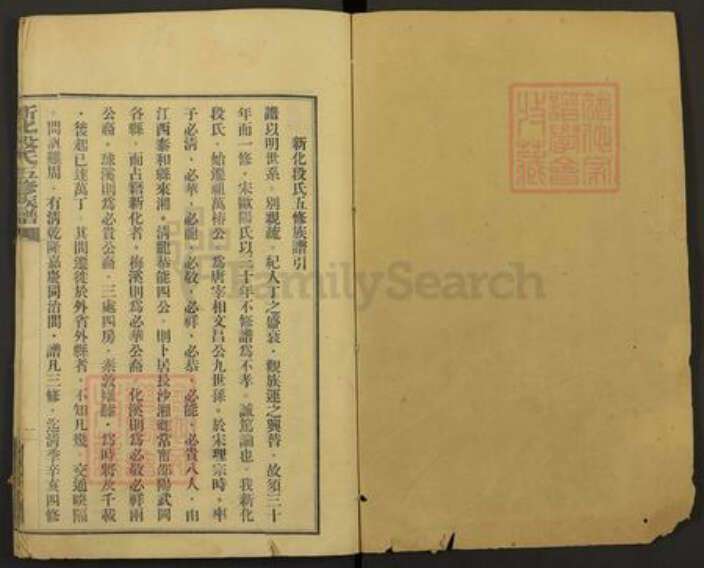 新化段氏五修族譜引
譜以明世系。別親疏。紀人丁之盛衰。觀族運之興替。故須三十
年而一修。宋歐陽氏以三十年不修譜爲不孝。誠篤論也。我新化
段氏。始遷祖萬椿公。爲唐宰相文昌公九世孫。於宋理宗時。率
子必清。必華。必龍。必敬。必祥。必恭。必能。必貴八人。由
江西泰和縣來湘。清龍恭能四公。則卜居長沙湘鄉常甯邵陽武岡
各縣。而占籍新化者。梅溪則爲必華公裔。化溪則爲必敬必祥兩
公裔。球溪則爲必貴公裔。三處四房。素敦雍睦。爲時將及千載
。後起已達萬丁。其間遷徙於外省外縣者。不知凡幾。交通暌隔
。問訊難周。有清乾隆嘉慶同治間。譜凡三修。迄清季辛亥四修
新化段氏五修族譜
FamilySearch